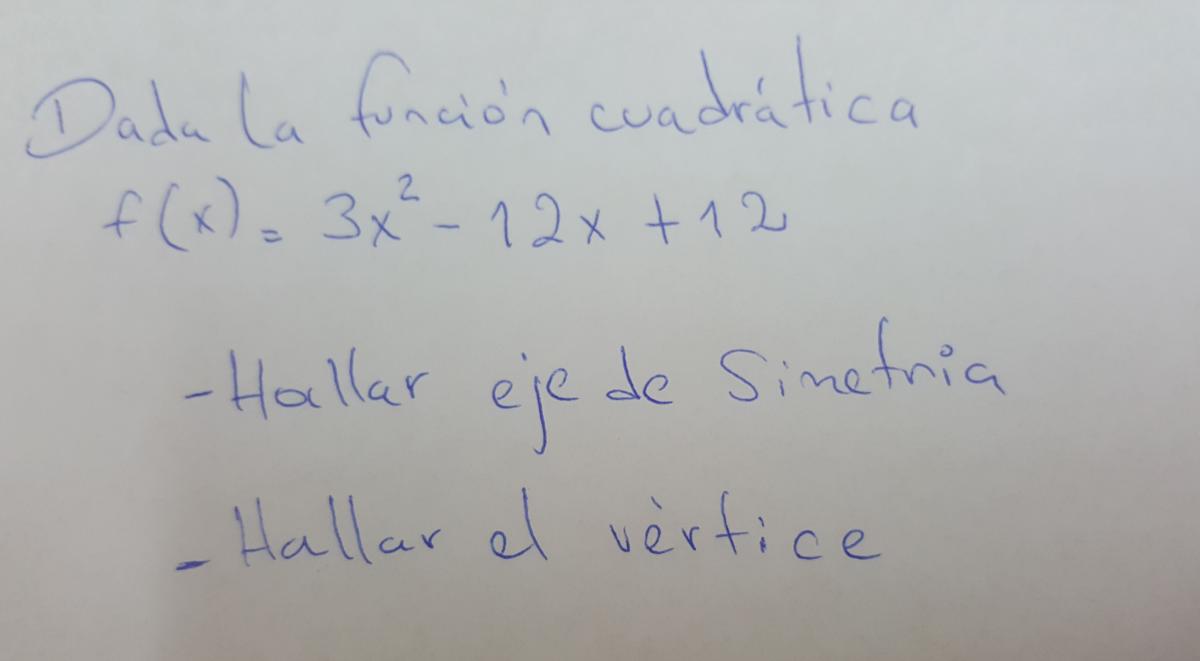 Dada la función cuadrática
f(x) = 3x² - 12x + 12
- Hallar eje de Simetria
- Hallar el vèrtice